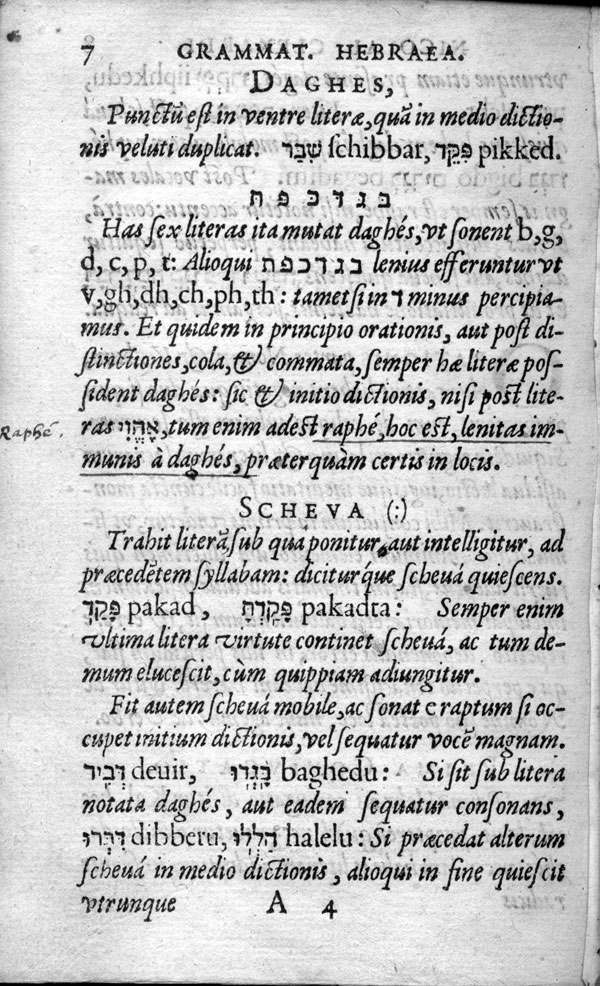 7 GRAMMAT. HEBRAEA.
DAGHES,
Punctũ est in ventre literæ, quã in medio dictio-
nis veluti duplicat. שִׁבַּר schibbar, פִּקֵּד pikked.
בּ גּ דּ כּ פּ תּ
Has sex literas ita mutat daghés, vt sonent b, g,
d, c, p, t: Alioqui ב ג ד כ פ ת lenius efferuntur vt
v, gh, dh, ch, ph, th: tametsi in ד minus percipia-
mus. Et quidem in principio orationis, aut post di-
stinctiones, cola, & commata, semper hæ literæ pos-
sident daghés: sic & initio dictionis, nisi post lite-
Raphé. ras אֶהֱוִי, tum enim adest raphé, hoc est, lenitas im-
munis à daghés, præterquàm certis in locis.
SCHEVA (:)
Trahit literã, sub qua ponitur, aut intelligitur, ad
præcedẽtem syllabam: diciturq́ue scheuá quiescens.
פָּקַד pakad, פָּקַדְתָּ pakadta: Semper enim
vltima litera virtute continet scheuá, ac tum de-
mum elucescit, cùm quippiam adiungitur.
Fit autem scheuá mobile, ac sonat e raptum si oc-
cupet initium dictionis, vel sequatur vocẽ magnam.
דְּבִיר deuir, בָּגְדוּ baghedu: Si sit sub litera
notata daghés, aut eadem sequatur consonans,
דִּבְּרוּ dibberu, הַלְלוּ halelu: Si præcedat alterum
scheuá in medio dictionis, alioqui in fine quiescit
vtrunque A 4